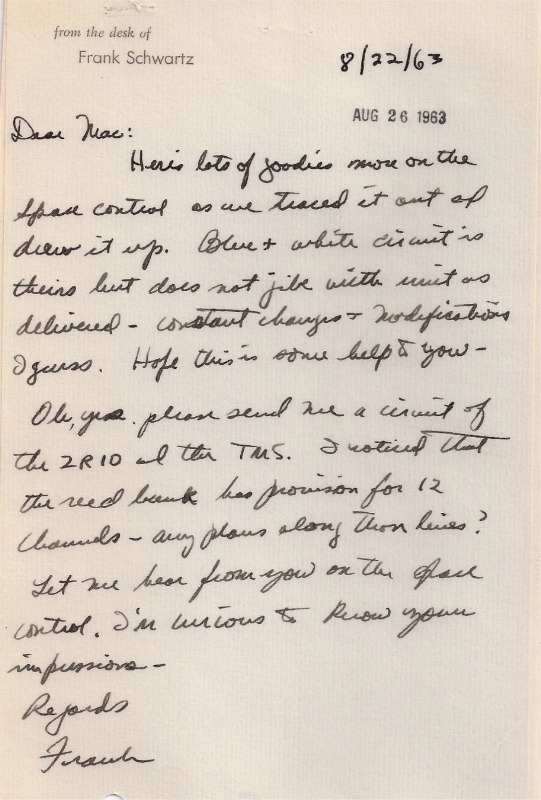 from the desk of
Frank Schwartz
8/22/63
AUG 26 1963
Dear Mac:
Heris lots of goodies more on the
Space control as we traced it out and
drew it up. Blue + white circuit is
theirs but does not jibe with unit as
delivered - constant changes + modifications
I guess. Hope this is some help to you -
Oh, yes. please send me a circuit of
the 2R10 and the TMS. I noticed that
the reed bank has provision for 12
channels - any plans along those lines?
Let me hear from you on the Space
control. I'm curious to know your
impressions -
Regards
Frank